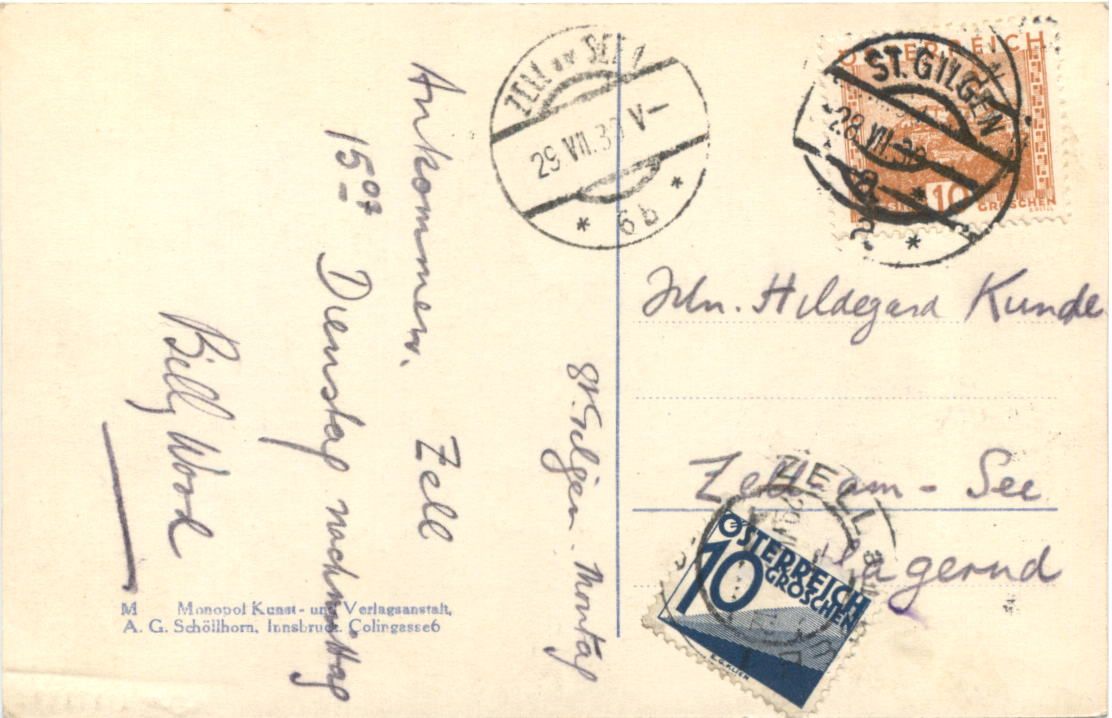 St. Gilgen. Montag
Ankommen. Zell
15⁰⁷ Dienstag nachmittag
Billy Wood
ZELL am SEE
29 VII.3 V-
* 6b *
ÖSTERREICH
10
GROSCHEN
ST. GILGEN
28.VII.3
*
Hildegard Kunde
Zell-am-See
Lagernd
ZELL a
ÖSTERREICH
10
GROSCHEN
M Monopol Kunst- und Verlagsanstalt,
A. G. Schöllhorn, Innsbruck. Colingasse6